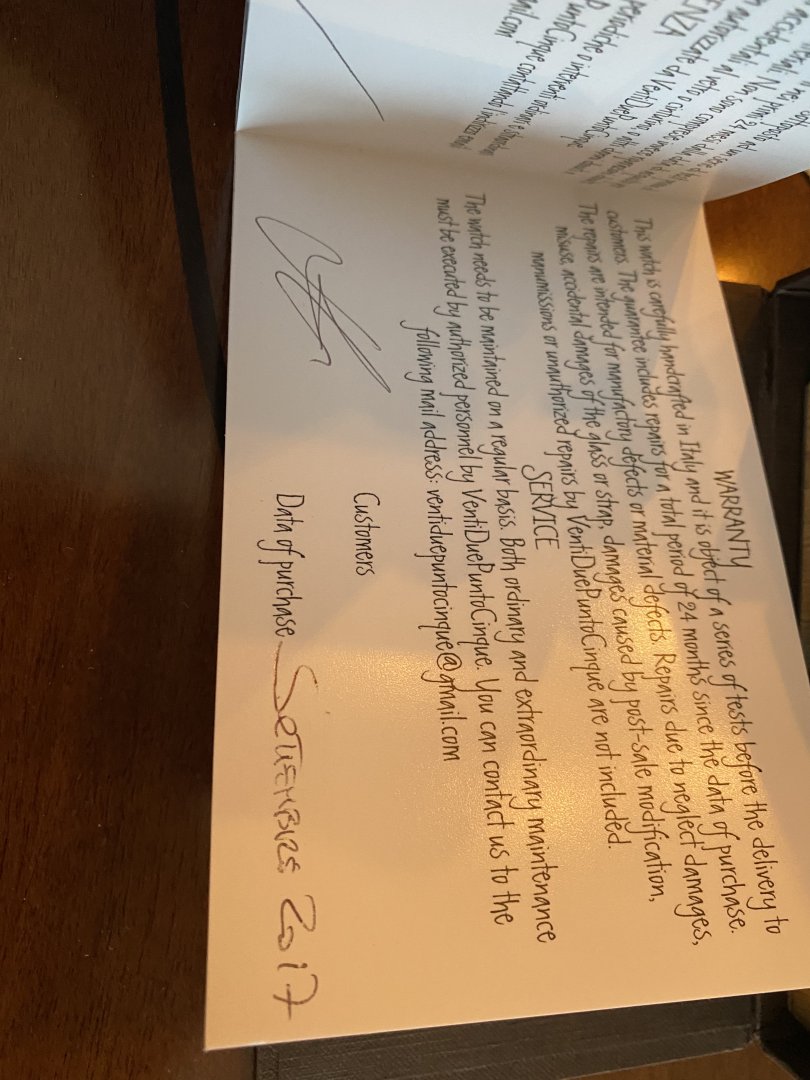 ENZA
WARRANTY
This watch is carefully handcrafted in Italy and it is object of a series of tests before the delivery to
customers. The guarantee includes repairs for a total period of 24 months since the data of purchase.
The repairs are intended for manufactory defects or material defects. Repairs due to neglect damages,
misuse, accidental damages of the glass or strap, damages caused by post-sale modification,
manumissions or unauthorized repairs by VentiDuePuntoCinque are not included.
SERVICE
The watch needs to be maintained on a regular basis. Both ordinary and extraordinary maintenance
must be executed by authorized personnel by VentiDuePuntoCinque. You can contact us to the
following mail address: ventiduepuntocinque@gmail.com
Customers
Data of purchase SETTEMBRE 2017